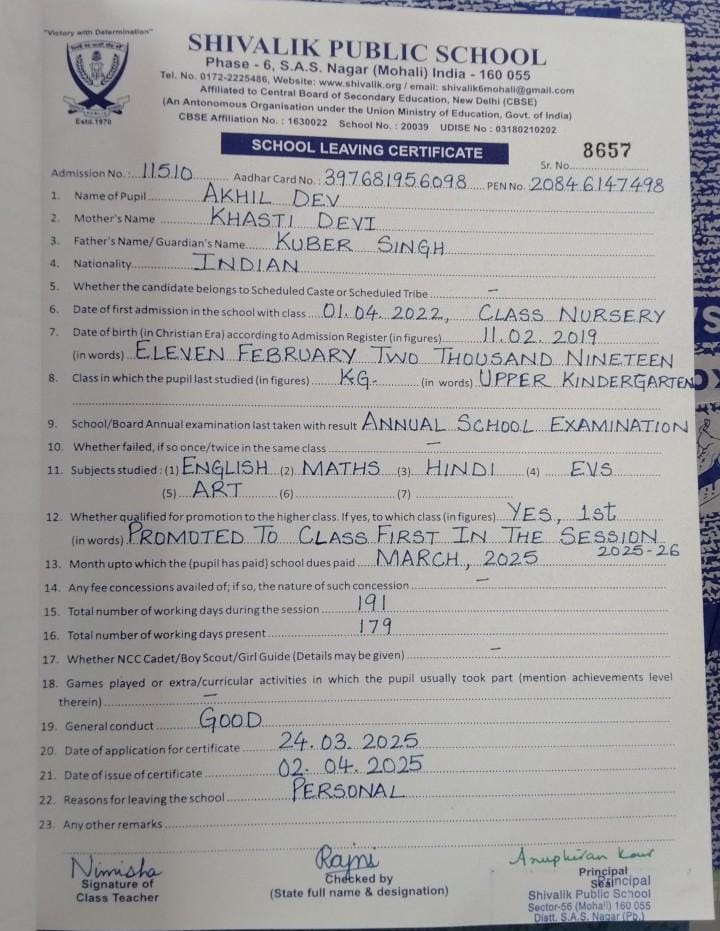 "Victory with Determination"
Estd.1970
SHIVALIK PUBLIC SCHOOL
Phase - 6, S.A.S. Nagar (Mohali) India - 160 055
Tel. No. 0172-2225486, Website: www.shivalik.org / email: shivalik6mohali@gmail.com
Affiliated to Central Board of Secondary Education, New Delhi (CBSE)
(An Antonomous Organisation under the Union Ministry of Education, Govt. of India)
CBSE Affiliation No. : 1630022 School No. : 20039 UDISE No : 03180210202
SCHOOL LEAVING CERTIFICATE
Sr. No. 8657
Admission No.: 11510 Aadhar Card No.: 397681956098 PEN No. 20846147498
1. Name of Pupil AKHIL DEV
2. Mother's Name KHASTI DEVI
3. Father's Name/ Guardian's Name KUBER SINGH
4. Nationality INDIAN
5. Whether the candidate belongs to Scheduled Caste or Scheduled Tribe —
6. Date of first admission in the school with class 01.04.2022, CLASS NURSERY
7. Date of birth (in Christian Era) according to Admission Register (in figures) 11.02.2019
(in words) ELEVEN FEBRUARY TWO THOUSAND NINETEEN
8. Class in which the pupil last studied (in figures) KG- (in words) UPPER KINDERGARTEN
9. School/Board Annual examination last taken with result ANNUAL SCHOOL EXAMINATION
10. Whether failed, if so once/twice in the same class —
11. Subjects studied : (1) ENGLISH (2) MATHS (3) HINDI (4) EVS
(5) ART (6) (7)
12. Whether qualified for promotion to the higher class. If yes, to which class (in figures) YES, 1st
(in words) PROMOTED TO CLASS FIRST IN THE SESSION
2025-26
13. Month upto which the (pupil has paid) school dues paid MARCH, 2025
14. Any fee concessions availed of; if so, the nature of such concession —
15. Total number of working days during the session 191
16. Total number of working days present 179
17. Whether NCC Cadet/Boy Scout/Girl Guide (Details may be given) —
18. Games played or extra/curricular activities in which the pupil usually took part (mention achievements level
therein) —
19. General conduct GOOD
20. Date of application for certificate 24.03.2025
21. Date of issue of certificate 02.04.2025
22. Reasons for leaving the school PERSONAL
23. Any other remarks
Nimisha Rajni Anupkiran Kaur
Signature of
Class Teacher
Checked by
(State full name & designation)
Principal
Seal
Principal
Shivalik Public School
Sector-56 (Mohali) 160 055
Distt. S.A.S. Nagar (Pb.)